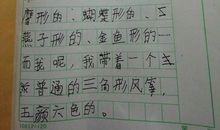 摩形的、蝴蝶形的、
燕子形的、金鱼形的一
而我呢，我带着一个
普通的三角形风筝，
五颜六色的。